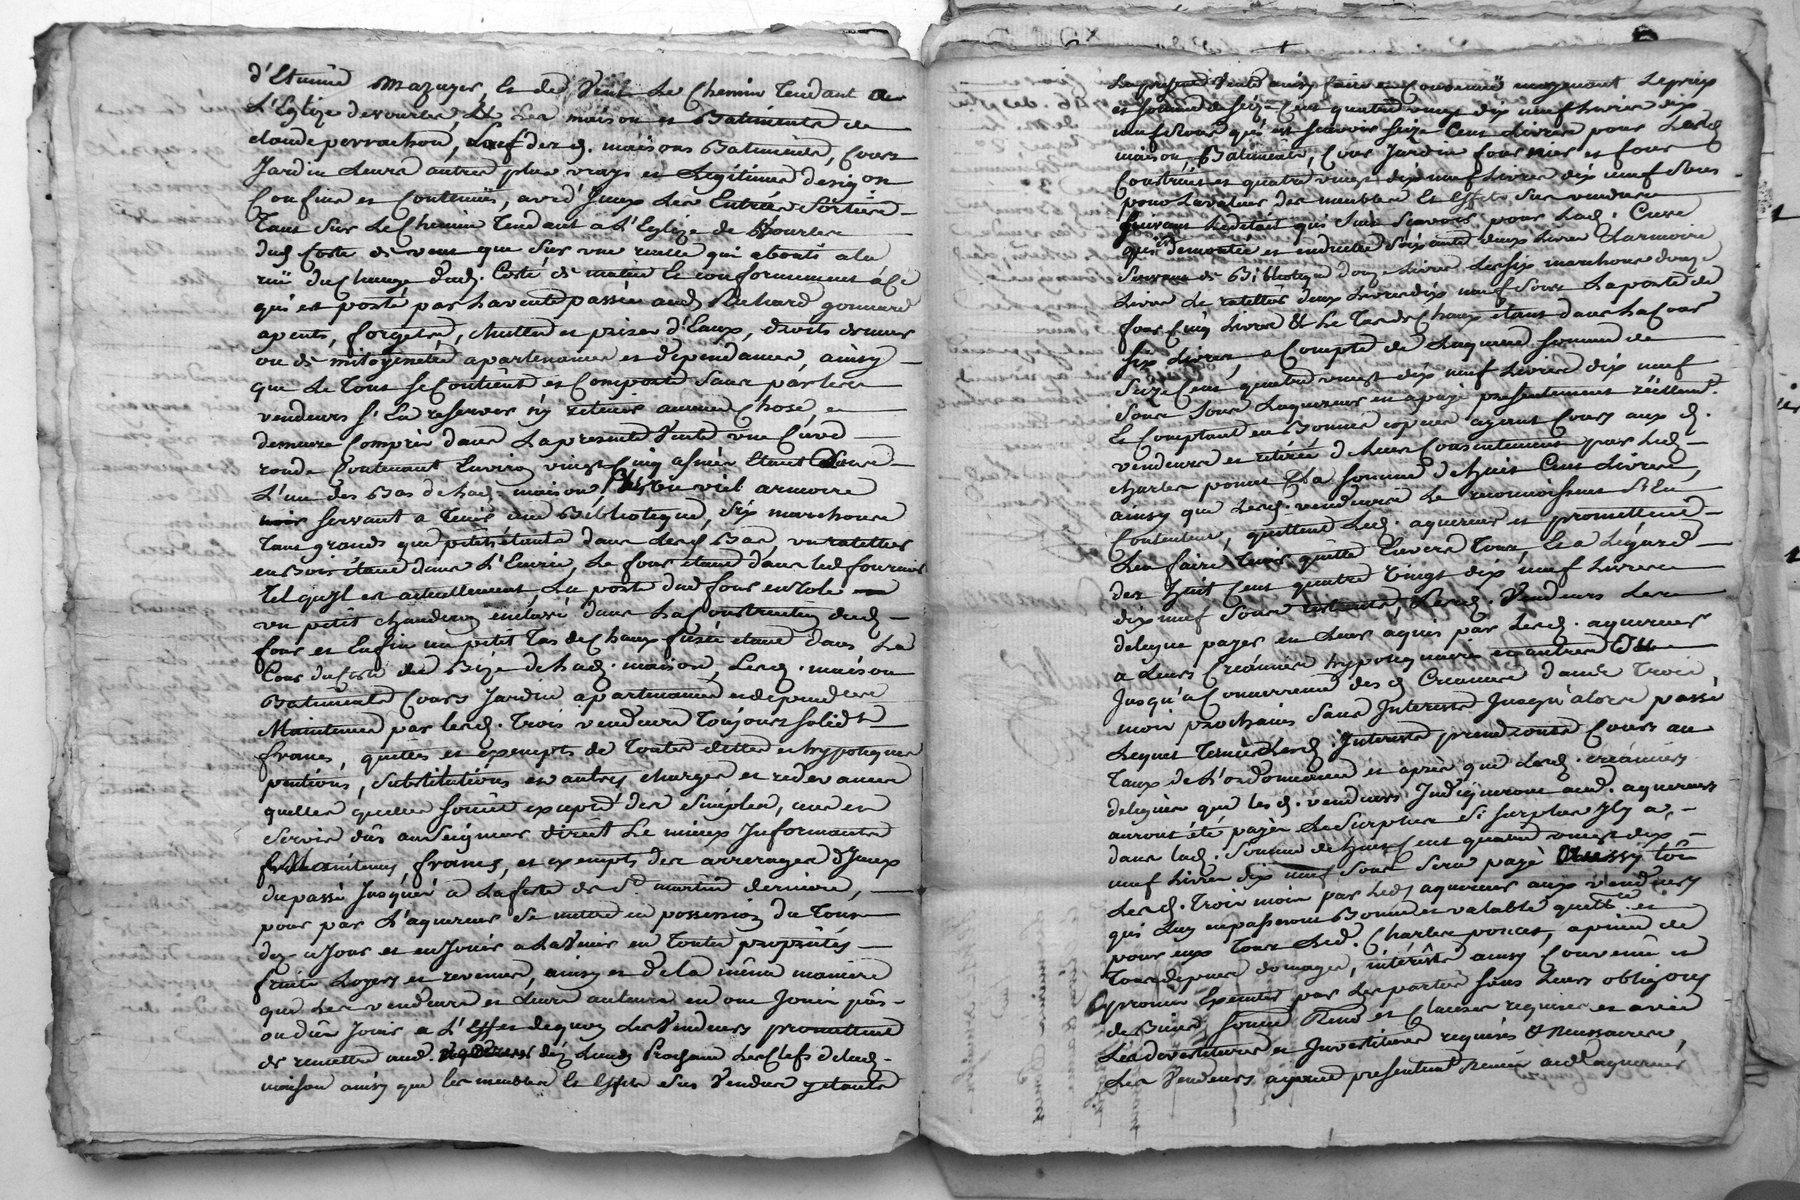 d'Etienne mazuyer, Et de Vent Le Chemin Tendant a
L'Eglize de vourles Et Les maison et Batiments de
claude perrachon, Sauf des d. maisons Batiments, Cour
Jardin Leurs autres plus vrays et Legitimes designon
Confins et Contenües, avec Yceux Les Entrées Sorties
Tant Sur Le Chemin Tendant a L'Eglize de Vourles
dud. Costé de vent que Sur une ruette qui aboutit a la
rüe du dud. Costé de matin Et conformement à ce
qui est porté par la vente passée aud. Richard gonnard
apents, forgets, chuttes et prises d'Eaux, droits de murs
ou de mitoyenneté apartenances et dépendances ainsy
que Le Tout Se Contient et Comporte Sans par les
vendeurs S'En reserver ny retenir aucune Chose, et
demeure Compris dans La presente Vente une Cuve
ronde Contenant Environ vingt Cinq asnées Etant dans
L'un des Bas de lad. maison, un viel armoire
servant a Tenir une Biblioteque, Six marchons
Tant grands que petits étants dans Lesd. Bas, un ratellier
en bois étant dans L'Ecurie, Le four étant dans led. fournier
Tel qu'Il est actuellement, La porte dud. four en tole
un petit chauderon enclavé dans La Construction dud.
four et Enfin un petit Tas de Chaux fusée étant dans La
Cour du Costé de Bize de Lad. maison, Lesd. maison
Batiments Cours Jardin apartenances et dependances
Maintenus par lesd. Trois vendeurs Toujours solidt.
francs, quittes et exempts de Toutes dettes et hypoteques
pentions, Substitutions et autres charges et redevances
quelles quelles soient excepté des Simples, cens et
Servis dûs au Seigneur direct Le mieux Informantes
Maintenus, francs, et exempts des arrerages d'Yceux
du passé Jusques a La feste de St. martin derniere,
pour par L'aquereur Se mettre en possession du Tout
dez ce Jour et en Jouir a L'avenir en Toutes proprietés
fruits Loyers et revenus, ainsy et de la même maniere
que Les vendeurs et Leurs auteurs en ont Joui
ou dû Jouir a L'Effet dequoy Les Vendeurs promettent
de remettre aud. dez Lundy Prochain Les Clefs de lad.
maison ainsy que les meubles Et Effets Sus Vendus y étants
La presente Vente ainsy faite et Convenue moyennant Le prix
et somme de Seize Cent quatre vingt dix neuf Livres dix
neuf Sous qui est Scavoir Seize Cent Livres pour Lesd.
maison, Batiments, Cour Jardin fournier et four
Construits et quatre vingt dix neuf Livres dix neuf Sous
pour La valeur des meubles Et Effets Sus vendus
Suivant Le détail qui Suit Scavoir pour Lad. Cuve
que démontée et enduitte Soixante deux Livres L'armoire
Servant de Biblioteque douze Livres Les Six marchons douze
Livres Le ratellier deux Livres dix neuf Sous La porte du
four Cinq Livres Et Le Tas de Chaux étant dans La Cour
Six Livres, a Compte de Laquelle Somme de
Seize Cent quatre vingt dix neuf Livres dix neuf
Sous Sous Laquereur en a payé presentement réellemt.
Et Comptant en Bonnes especes ayant Cours aux d.
vendeurs et retirée de Leur Consentement par led.
Charles poncet La Somme de huit Cent Livres,
ainsy que Lesd. vendeurs Le reconnoissent S'En
Contentent, quittent Led. aquereur et promettent
Len faire Tenir quitte Envers Tous, Et a L'égard
des huit Cent quatre Vingt dix neuf Livres
dix neuf Sous restants Lesd. Vendeurs Les
deleguent payer en Leur aquit par Led. aquereur
a Leurs Créanciers hypotequaires et autres
Jusqu'a Concurrence des d. Creances dans Trois
mois prochains Sans Interets Jusqu'alors passé
Lequel Terme Lesd. Interets prendront Cours au
Taux de L'ordonnance et après que Lesd. créanciers
delegués que les d. vendeurs Indiqueront aud. aquereur
auront été payés Le Surplus Si Surplus Il y a,
dans lad. Somme de huit Cent quatre vingt dix
neuf Livres dix neuf Sous Sera payé aussy tôt
Lesd. Trois mois par Led. aquereur aux Vendeurs
qui Luy en passeront Bonne et valable quittce. et
pour eux Tous Led. Charles poncet, a peine de
Tous depens domages, intérêts ainsy Convenu et
promis Executer par Les parties sous Leurs obligons
de Biens Soumis Renon et Clauses requises et avec
Les devestitures et Investitures requises Et Necessaires,
Les Vendeurs ayant presentement remis aud. aquereur